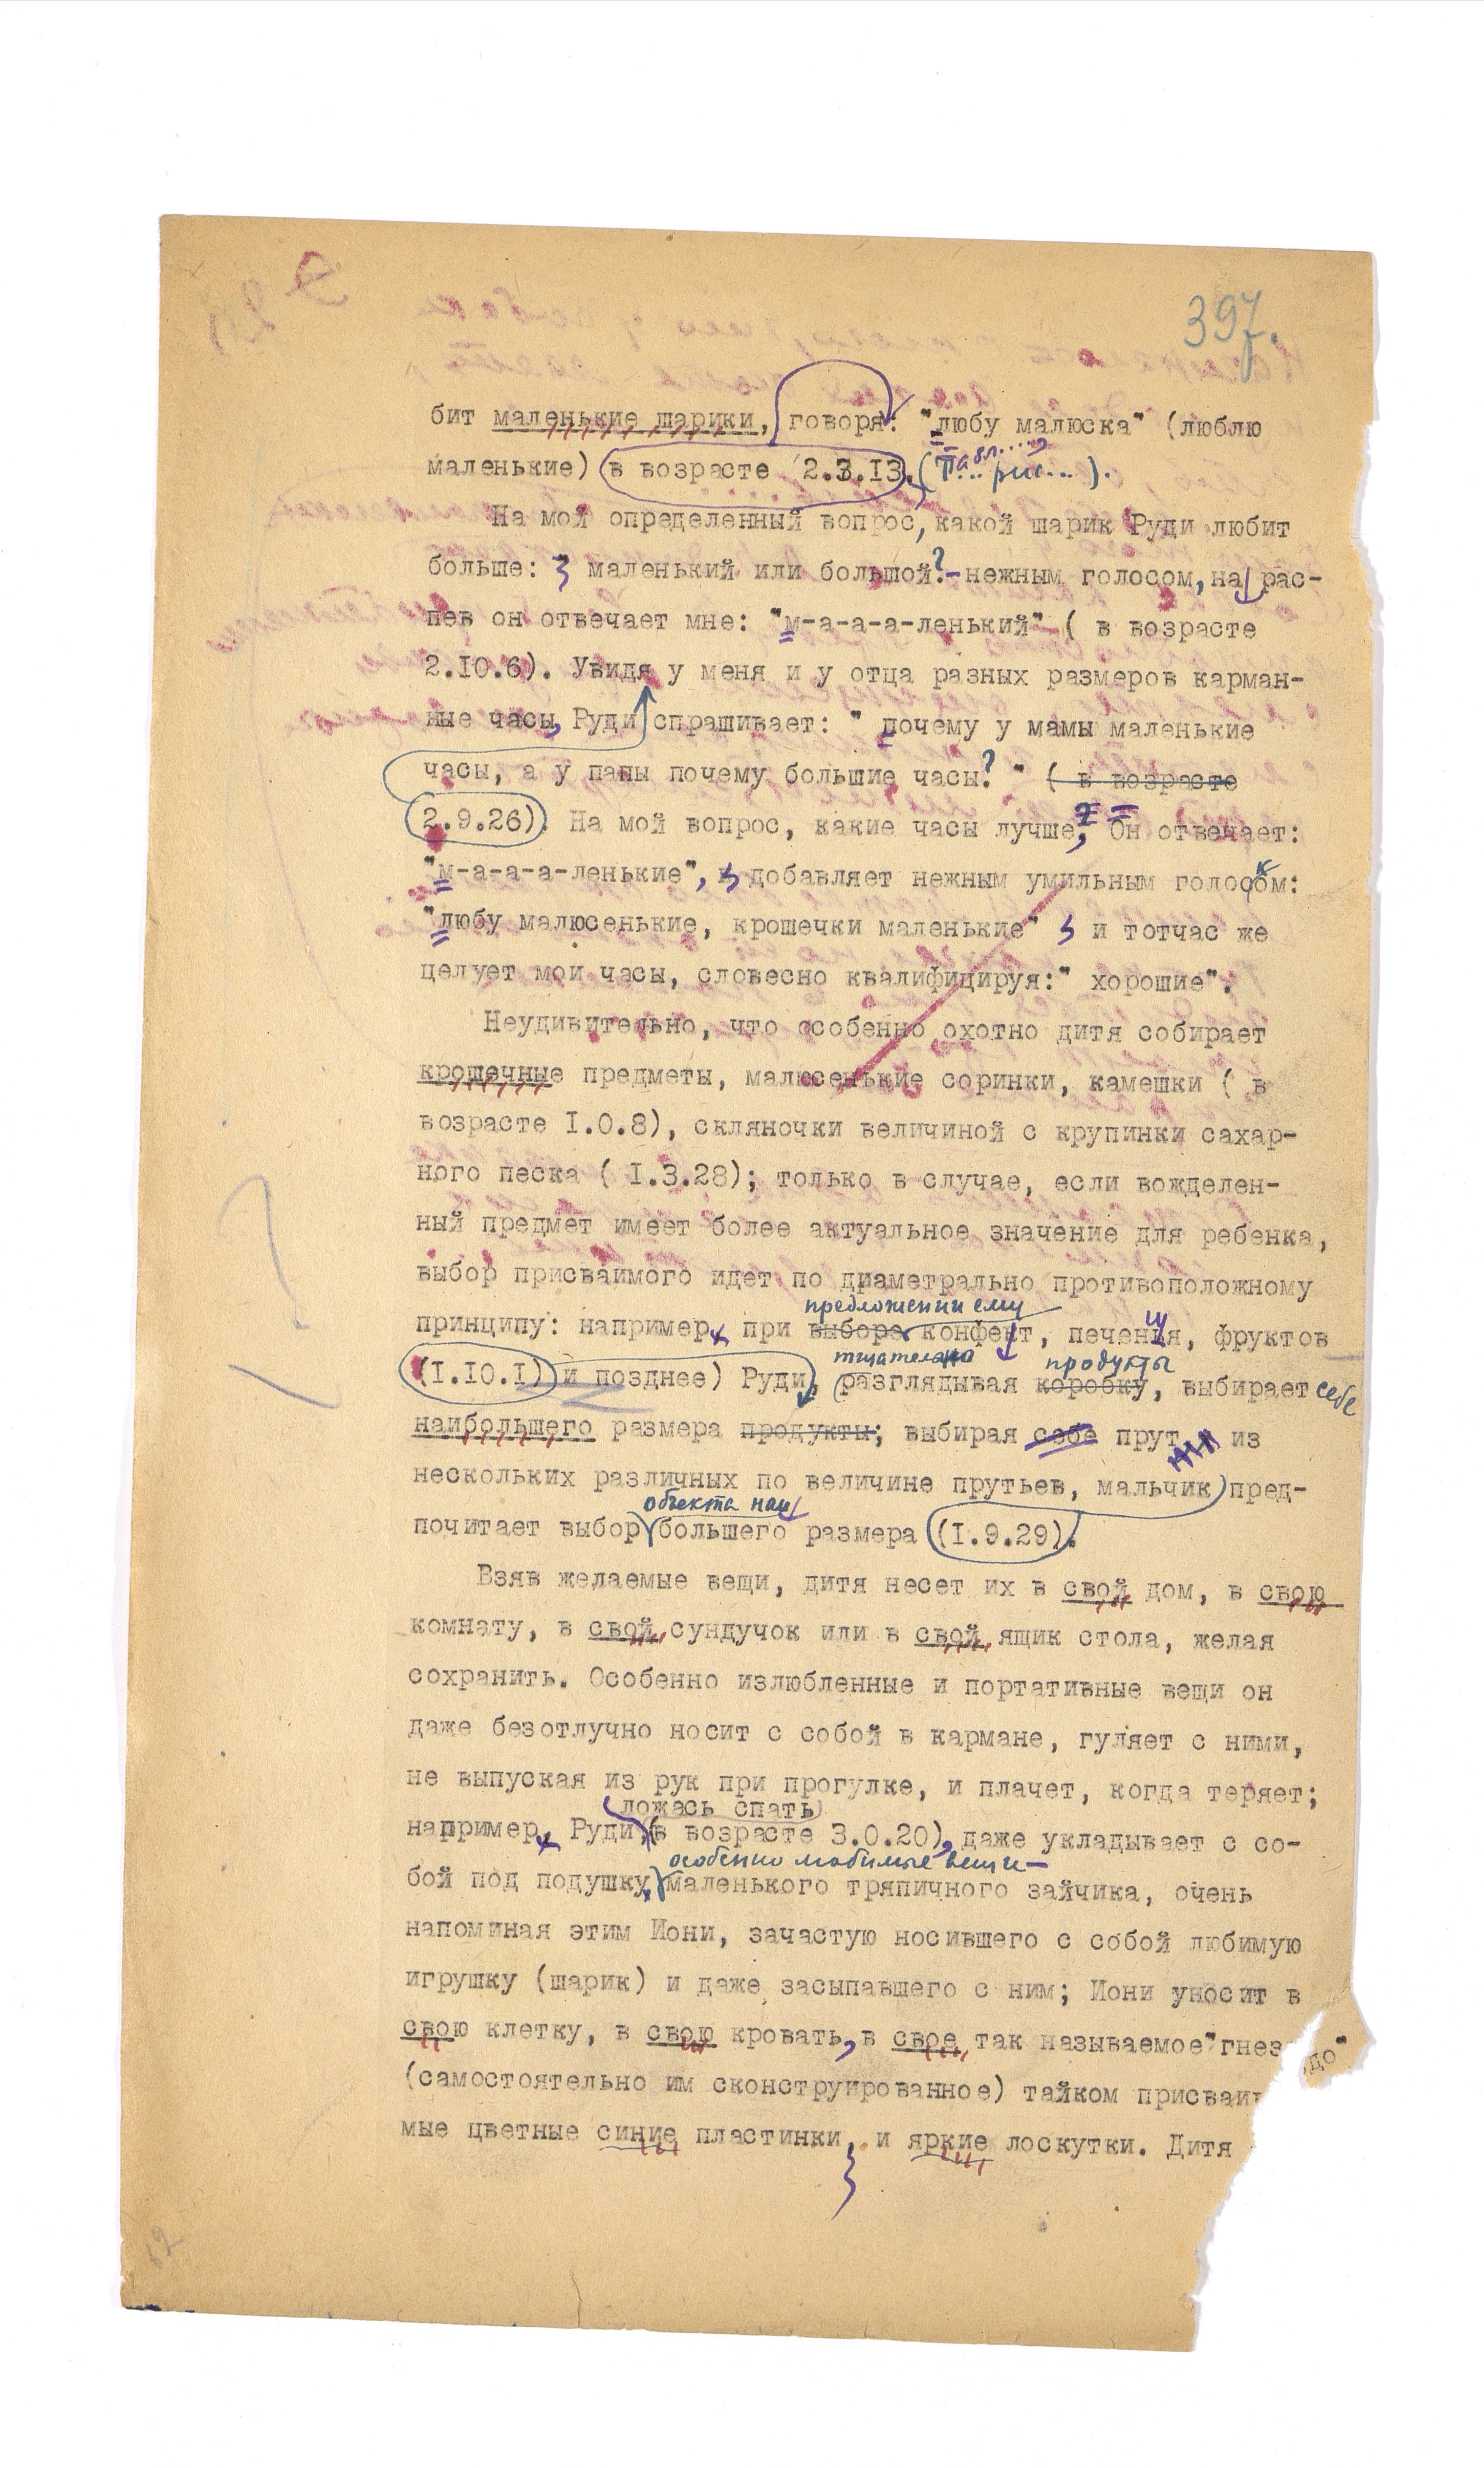 397.
бит маленькие шарики, говоря: "любу малюска" (люблю
маленькие) в возрасте 2.3.13. (Табл.... рис...).
На мой определенный вопрос, какой шарик Руди любит
больше: маленький или большой? - нежным голосом, на рас-
пев он отвечает мне: "м-а-а-а-ленький" ( в возрасте
2.10.6). Увидя у меня и у отца разных размеров карман-
ные часы, Руди спрашивает: " почему у мамы маленькие
часы, а у папы почему большие часы? " ( в возрасте
2.9.26). На мой вопрос, какие часы лучше, Он отвечает:
"м-а-а-а-ленькие", добавляет нежным умильным голоском:
"любу малюсенькие, крошечки маленькие" и тотчас же
целует мои часы, словесно квалифицируя:" хорошие".
Неудивительно, что особенно охотно дитя собирает
крошечные предметы, малюсенькие соринки, камешки ( в
возрасте I.0.8), скляночки величиной с крупинки сахар-
ного песка ( I.3.28); только в случае, если вожделен-
ный предмет имеет более актуальное значение для ребенка,
выбор присваимого идет по диаметрально противоположному
предложении ему
принципу: например, при выборе конфект, печенья, фруктов
тщательно продукты
(I.10.I) и позднее) Руди, разглядывая коробку, выбирает себе
наибольшего размера продукты; выбирая себе прут из
нескольких различных по величине прутьев, мальчик пред-
объекта наи
почитает выбор большего размера (I.9.29).
Взяв желаемые вещи, дитя несет их в свой дом, в свою
комнату, в свой сундучок или в свой ящик стола, желая
сохранить. Особенно излюбленные и портативные вещи он
даже безотлучно носит с собой в кармане, гуляет с ними,
не выпуская из рук при прогулке, и плачет, когда теряет;
ложась спать
например, Руди, (в возрасте 3.0.20), даже укладывает с со-
особенно любимые вещи -
бой под подушку, маленького тряпичного зайчика, очень
напоминая этим Иони, зачастую носившего с собой любимую
игрушку (шарик) и даже засыпавшего с ним; Иони уносит в
свою клетку, в свою кровать, в свое так называемое "гнездо"
(самостоятельно им сконструированное) тайком присваи
мые цветные синие пластинки, и яркие лоскутки. Дитя